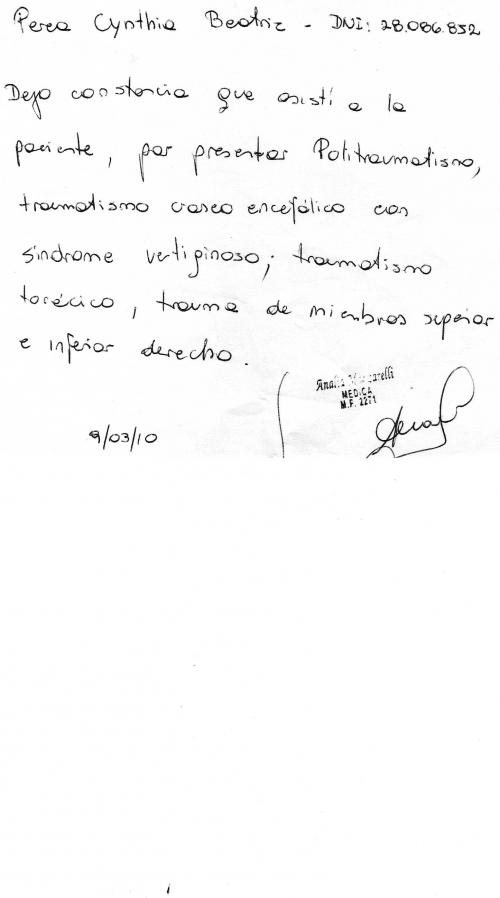 Perea Cynthia Beatriz - DNI: 28.086.852
Dejo constancia que asistí a la
paciente, por presentar Politraumatismo,
traumatismo craneo encefálico con
síndrome vertiginoso; traumatismo
torácico, trauma de miembros superior
e inferior derecho.
MEDICA
M.P. 2271
9/03/10